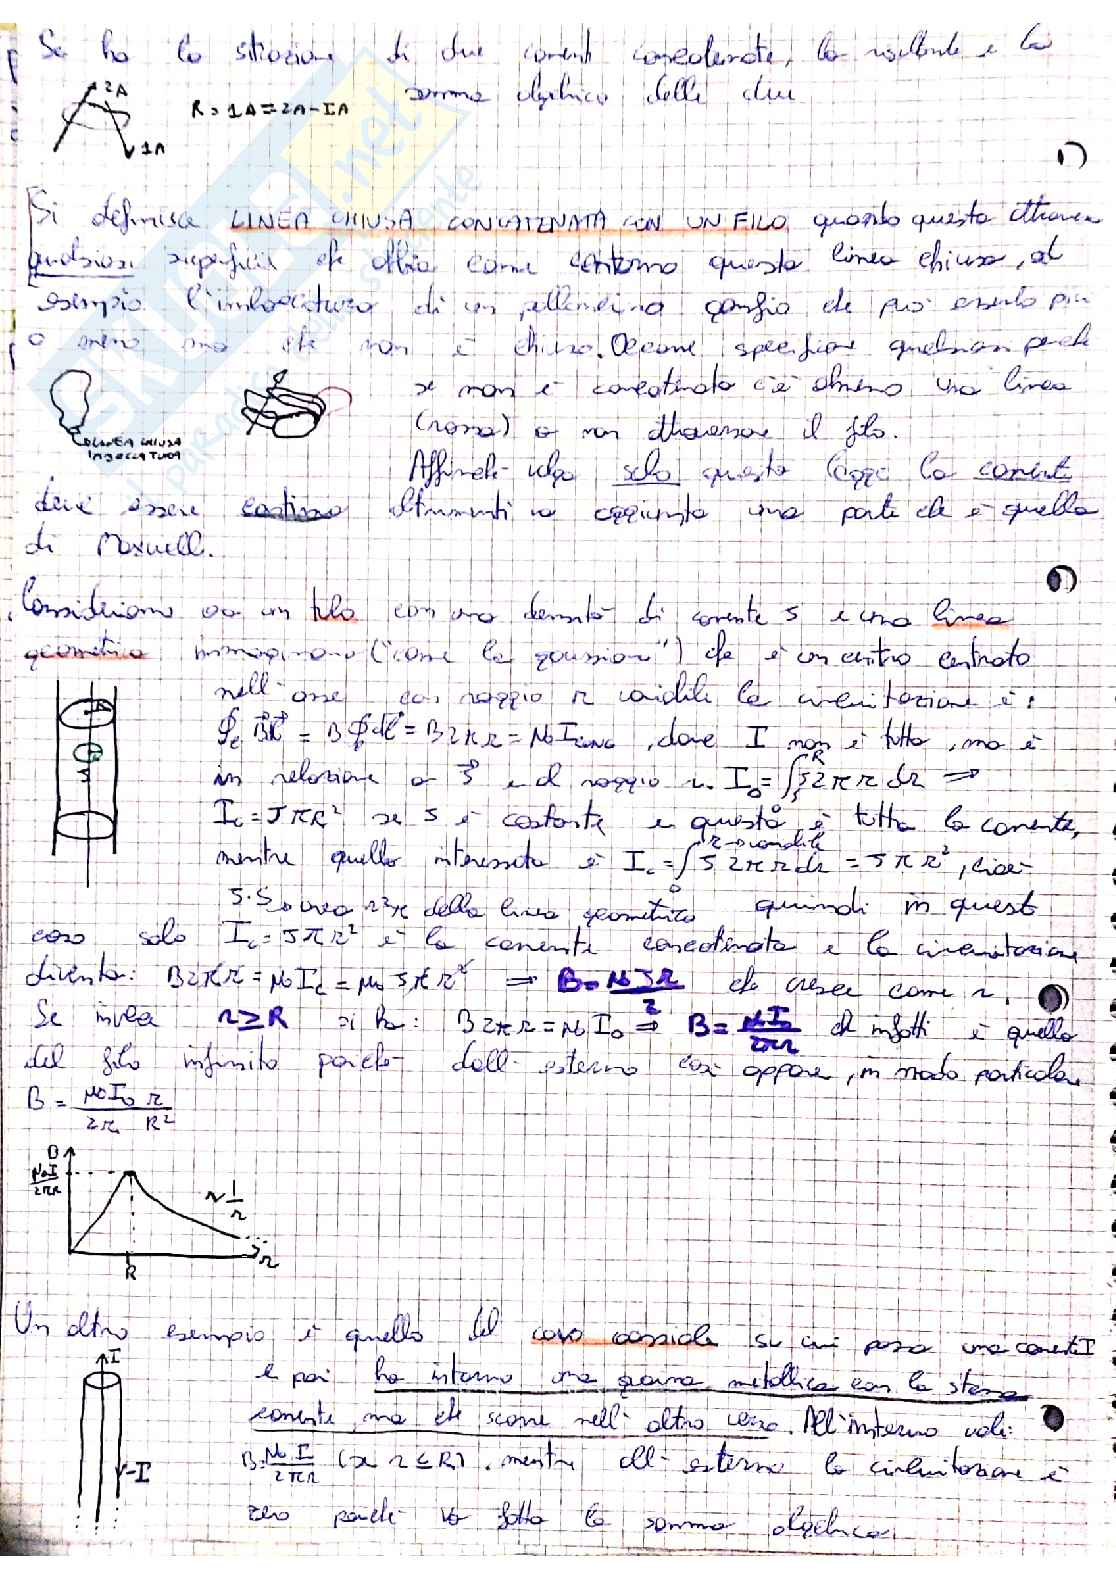 Se ho la situazione di due correnti concatenate, la risultante è la
somma algebrica delle due
2A
R = 1A = 2A - 1A
1A
1)
Si definisce LINEA CHIUSA CONCATENATA CON UN FILO quando questo attraversa
qualsiasi superficie che abbia come contorno questa linea chiusa, ad
esempio l'imboccatura di un palloncino gonfio che può esserlo più
o meno ma che non è chiuso. Occorre specificare qualsiasi perché
se non è concatenata c'è almeno una linea
(rossa) a non attraversare il filo.
LINEA CHIUSA
IMBOCCATURA
Affinché valga solo questa legge la corrente
deve essere continua altrimenti va aggiunta una parte che è quella
di Maxwell.
Consideriamo ora un filo con una densità di corrente J e una linea
geometrica immaginaria ("come la gaussiana") che è un cerchio centrato
nell'asse con raggio r variabile la circuitazione è:
∮c B dl = B ∮ dl = B 2πr = μ0 I conc, dove I non è tutta, ma è
in relazione a J e al raggio r. I0 = ∫ J 2πr dr ⇒
Ic = JπR² se J è costante e questa è tutta la corrente,
r → variabile
mentre quella interessata è Ic = ∫ J 2πr dr = Jπr², cioè
J·S area r²π della linea geometrica quindi in questo
caso solo Ic = Jπr² è la corrente concatenata e la circuitazione
diventa: B2πr = μ0 Ic = μ0 Jπr² ⇒ B = μ0Jr/2 che cresce come r.
Se invece r ≥ R si ha: B2πr = μ0 I0 ⇒ B = μ0I0/2πr ed infatti è quello
del filo infinito perché dall'esterno così appare, in modo particolare
B = μ0I0/2π r/R²
B
μ0I/2πR
~ 1/r
R
r
Un altro esempio è quello del cavo coassiale su cui passa una corrente I
e poi ha intorno una guaina metallica con la stessa
corrente ma che scorre nell'altro verso. All'interno vale:
I
-I
B = μ0I/2πr (se r ≤ R), mentre all'esterno la circuitazione è
zero perché va fatta la somma algebrica.
SKUPPS.net